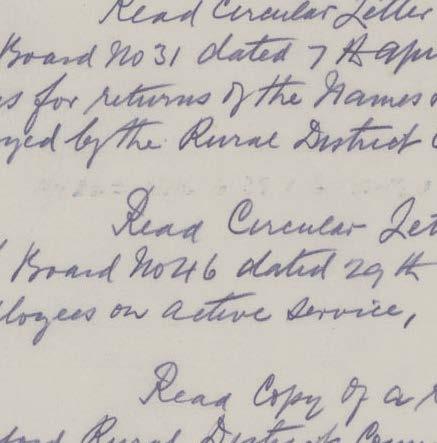 Read Circular Letter
Board No 31 dated 7th Apri
es for returns of the Names
yed by the Rural District
Read Circular Let
Board No 46 dated 29th
loyees on active service,
Read Copy of a
Rural District Coun